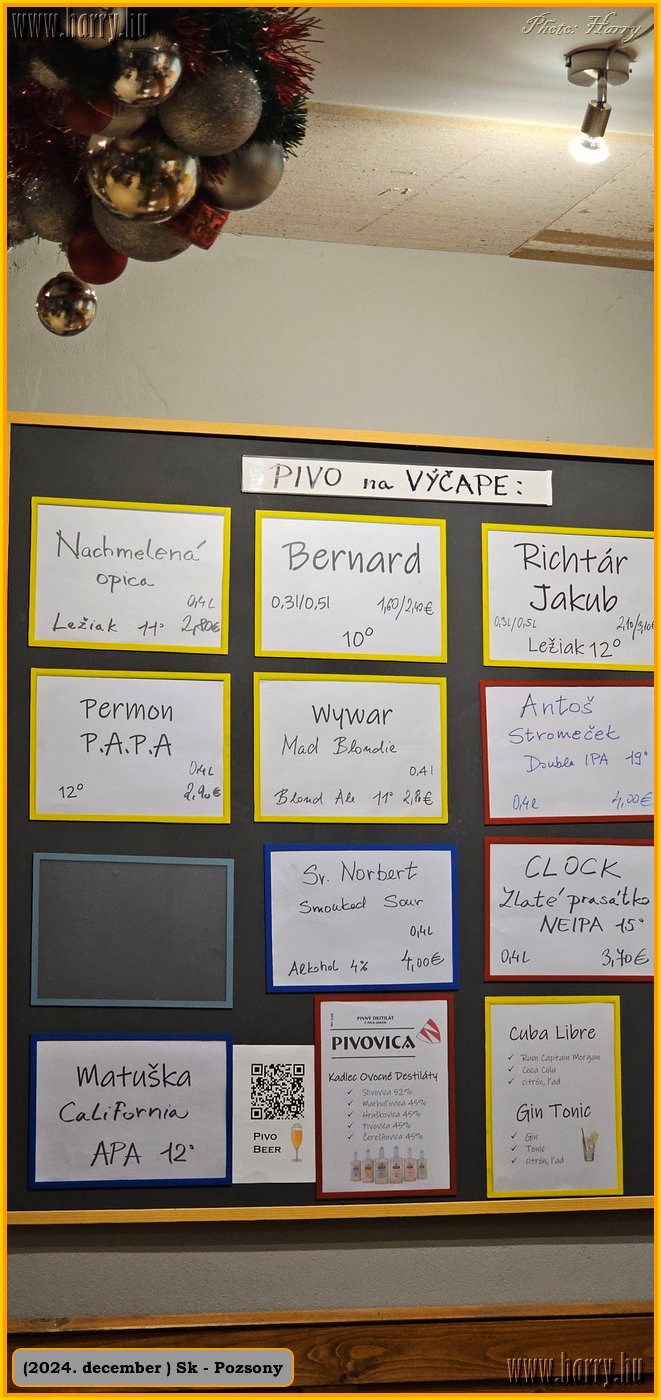 www.horry.hu
Photo: Horry
PIVO na VÝČAPE:
Nachmelená
opica
0,4L
Ležiak 11° 2,80€
Bernard
0,3l/0,5l 1,60/2,40€
10°
Richtár
Jakub
0,3L/0,5L 2,10/3,10€
Ležiak 12°
Permon
P.A.P.A
0,4L
12° 2,90€
Wywar
Mad Blondie
0,4l
Blond Ale 11° 2,80€
Antoš
Stromeček
Double IPA 19°
0,4l 4,00€
Sv. Norbert
Smouked Sour
0,4L
Alkohol 4% 4,00€
CLOCK
Zlaté prasátko
NEIPA 15°
0,4L 3,70€
Matuška
California
APA 12°
PIVO
BEER
PIVNÝ DESTILÁT
PIVOVICA
Kadlec Ovocné Destiláty
✓ Slivovica 52%
✓ Marhuľovica 45%
✓ Hruškovica 45%
✓ Pivovica 45%
✓ Čerešňovica 45%
Cuba Libre
✓ Rum Captain Morgan
✓ Coca Cola
✓ citrón, ľad
Gin Tonic
✓ Gin
✓ Tonic
✓ citrón, ľad
(2024. december ) Sk - Pozsony
www.horry.hu